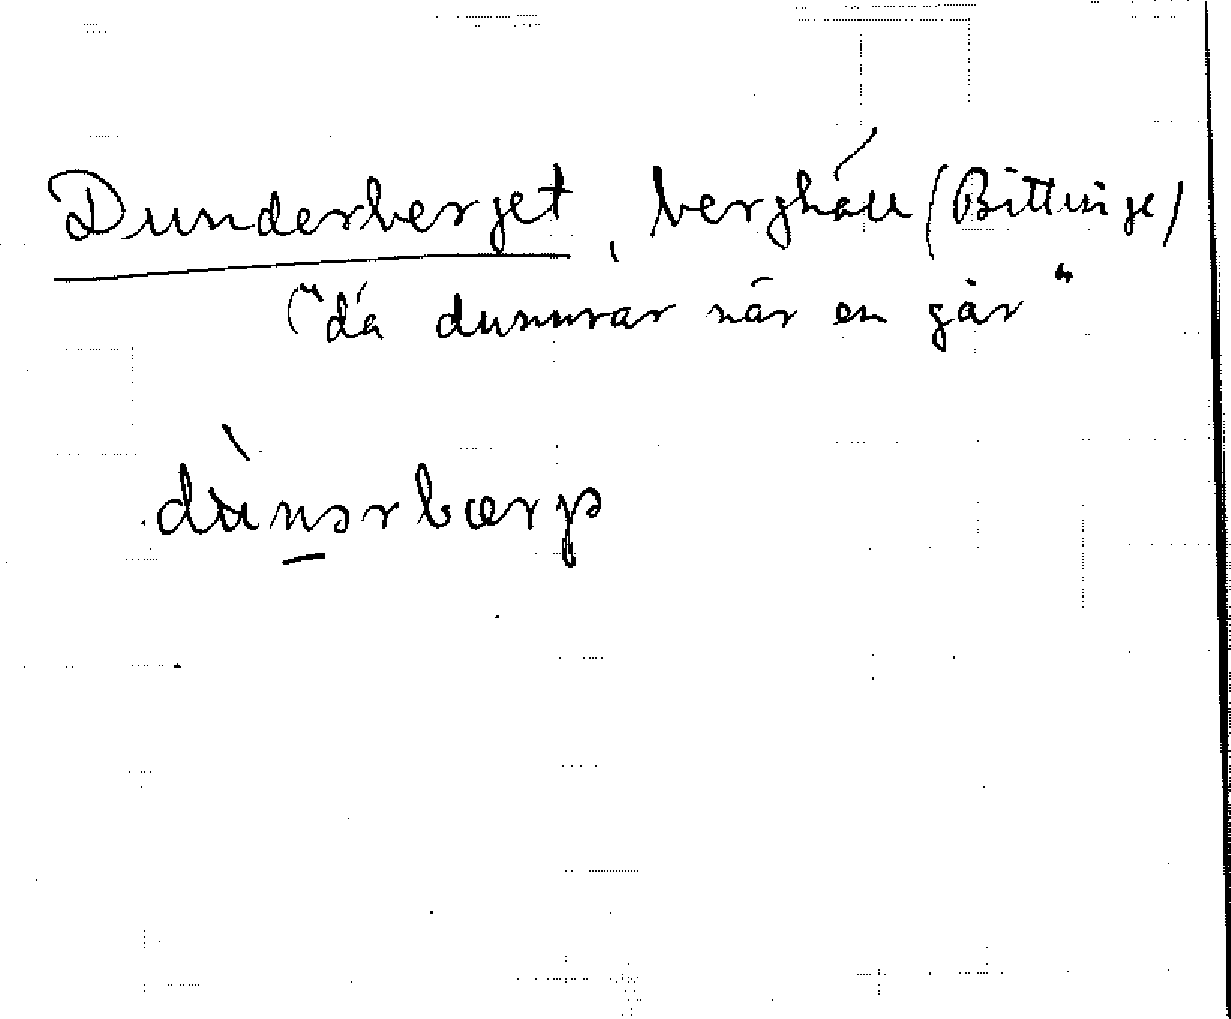 Dunderberget, berghäll (Bittinge)
("dá dunnrar när en går"
dùnərbærjə